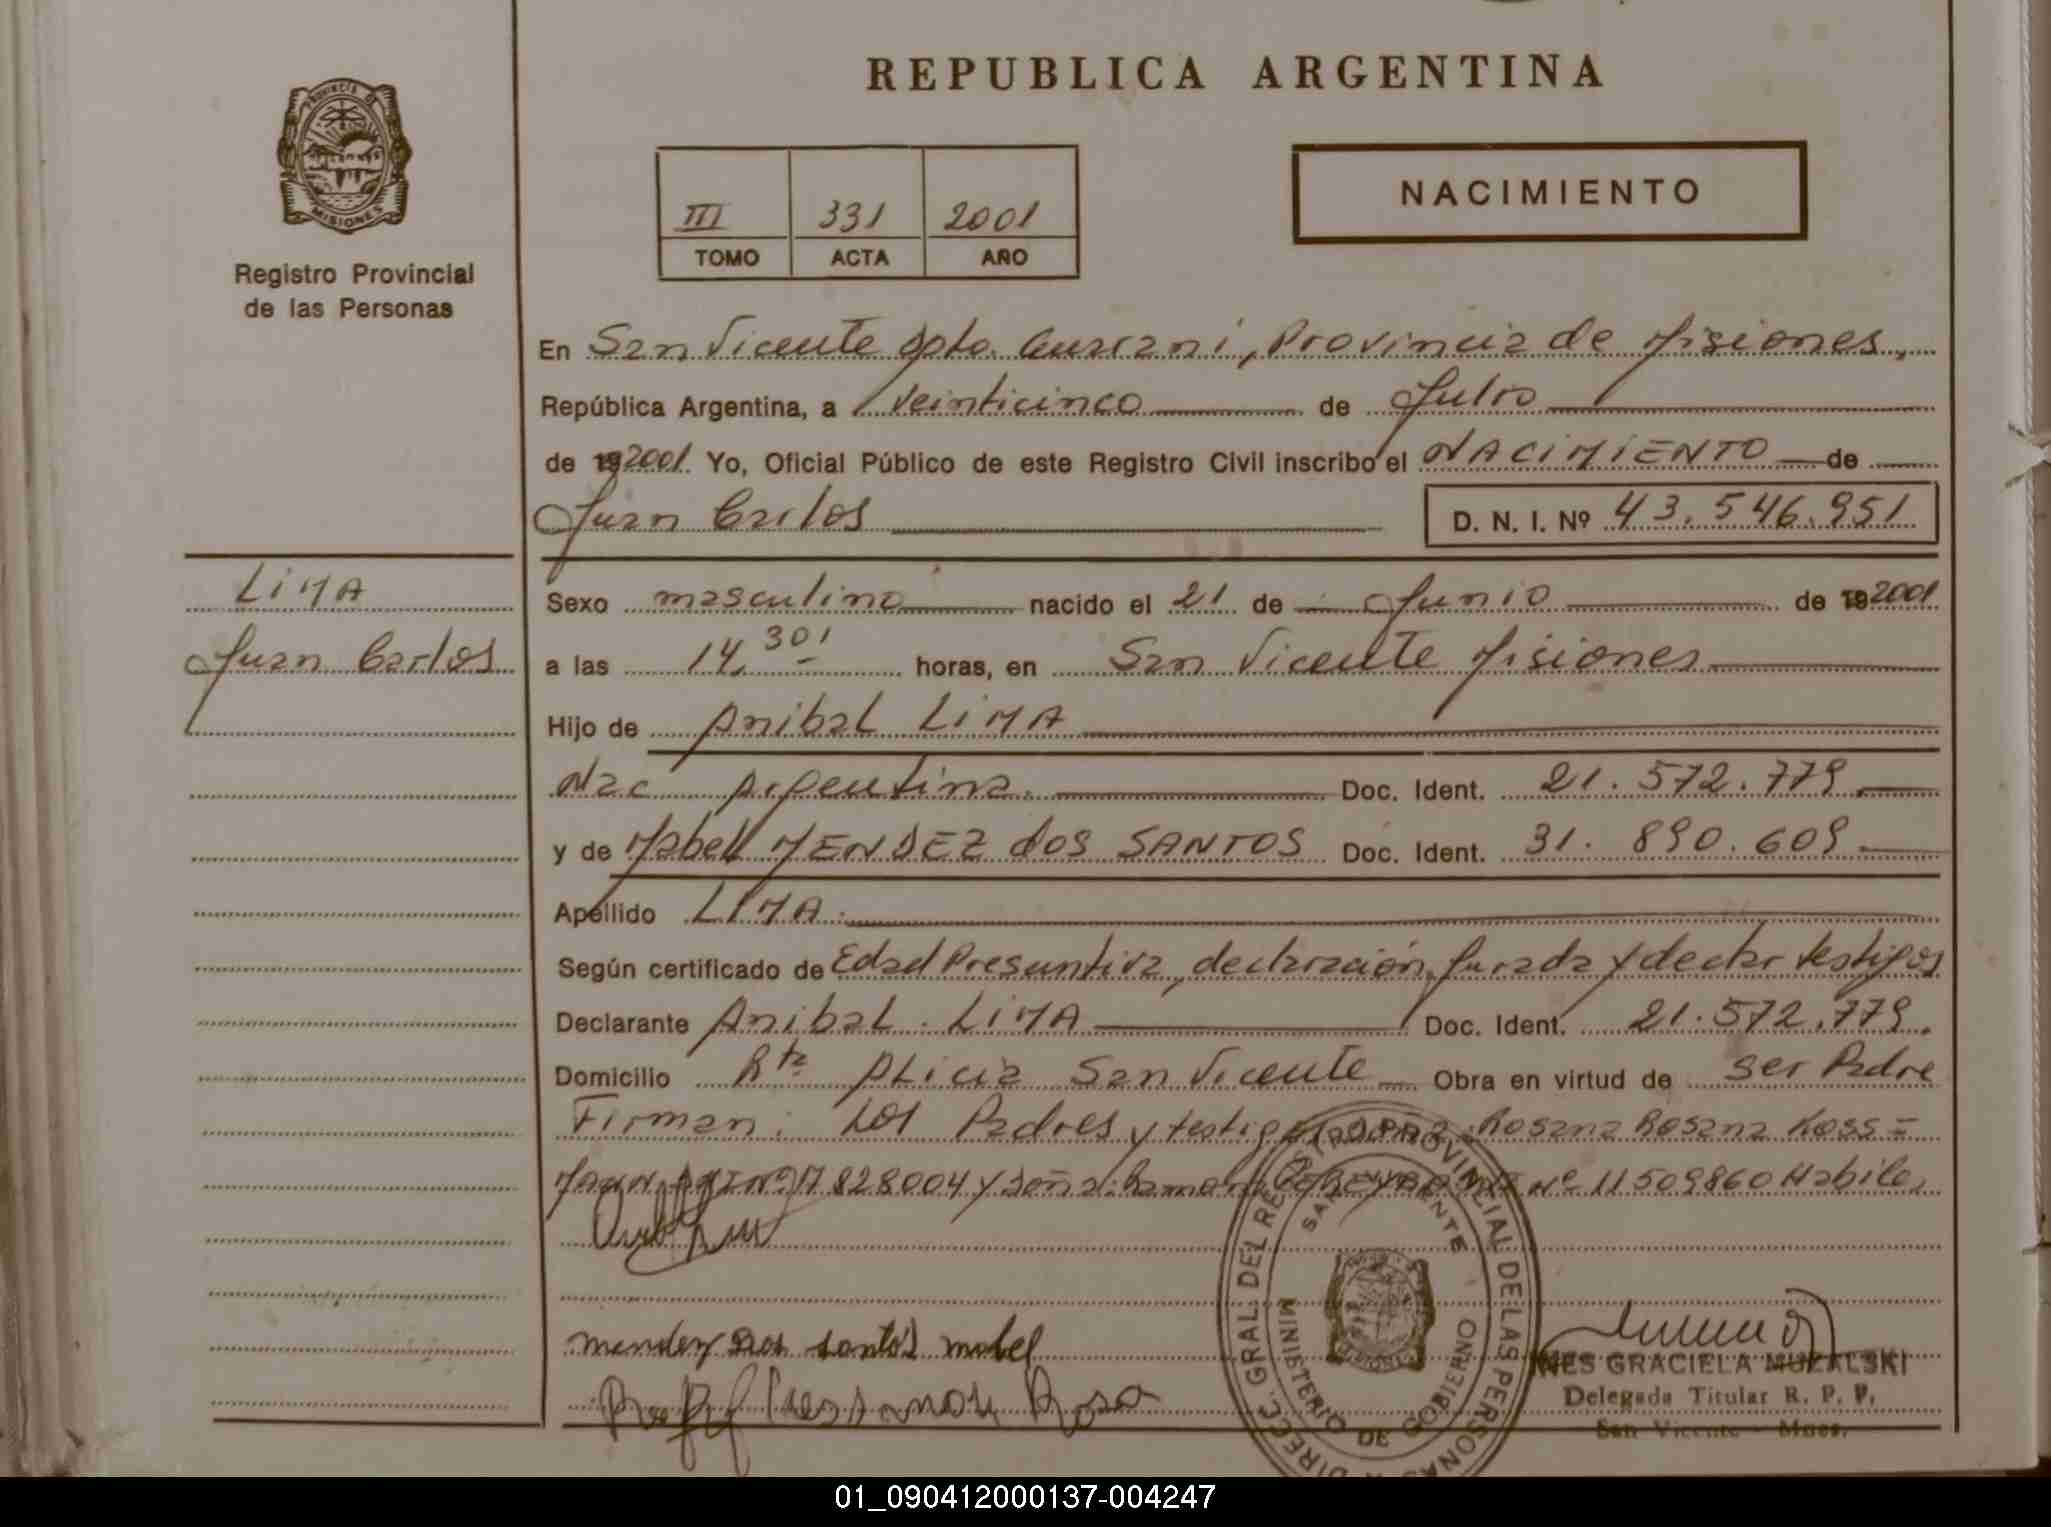 REPUBLICA ARGENTINA
PROVINCIA DE
MISIONES
Registro Provincial
de las Personas
III 331 2001
TOMO ACTA AÑO
NACIMIENTO
En San Vicente Dpto. Guarani, Provincia de Misiones,
República Argentina, a veinticinco de Julio
de 19 2001. Yo, Oficial Público de este Registro Civil inscribo el NACIMIENTO de
Juan Carlos
D. N. I. Nº 43.546.951
LIMA
Juan Carlos
Sexo masculino nacido el 21 de Junio de 19 2001
a las 14,30' horas, en San Vicente Misiones
Hijo de Anibal LIMA
Nac Argentina. Doc. Ident. 21.572.779.
y de Mabel MENDEZ dOS SANTOS Doc. Ident. 31.890.609.
Apellido LIMA.
Según certificado de Edad Presuntiva, declaración Jurada y declar testigos
Declarante Anibal LIMA Doc. Ident. 21.572.779.
Domicilio Rta ALicia San Vicente Obra en virtud de ser Padre
Firman: Los Padres y testigos Rosana Rosana Koss=
Mann DNI Nº 17828004 y doña: Ramona Nº 11509860 Habiles
mendez Dos santos mabel
Rosa
DIREC. GRAL. DEL REGISTRO PROVINCIAL DE LAS PERSONAS
SAN VICENTE
MINISTERIO DE GOBIERNO
INES GRACIELA MUZALSKI
Delegada Titular R. P. P.
San Vicente - Mnes.
01_090412000137-004247